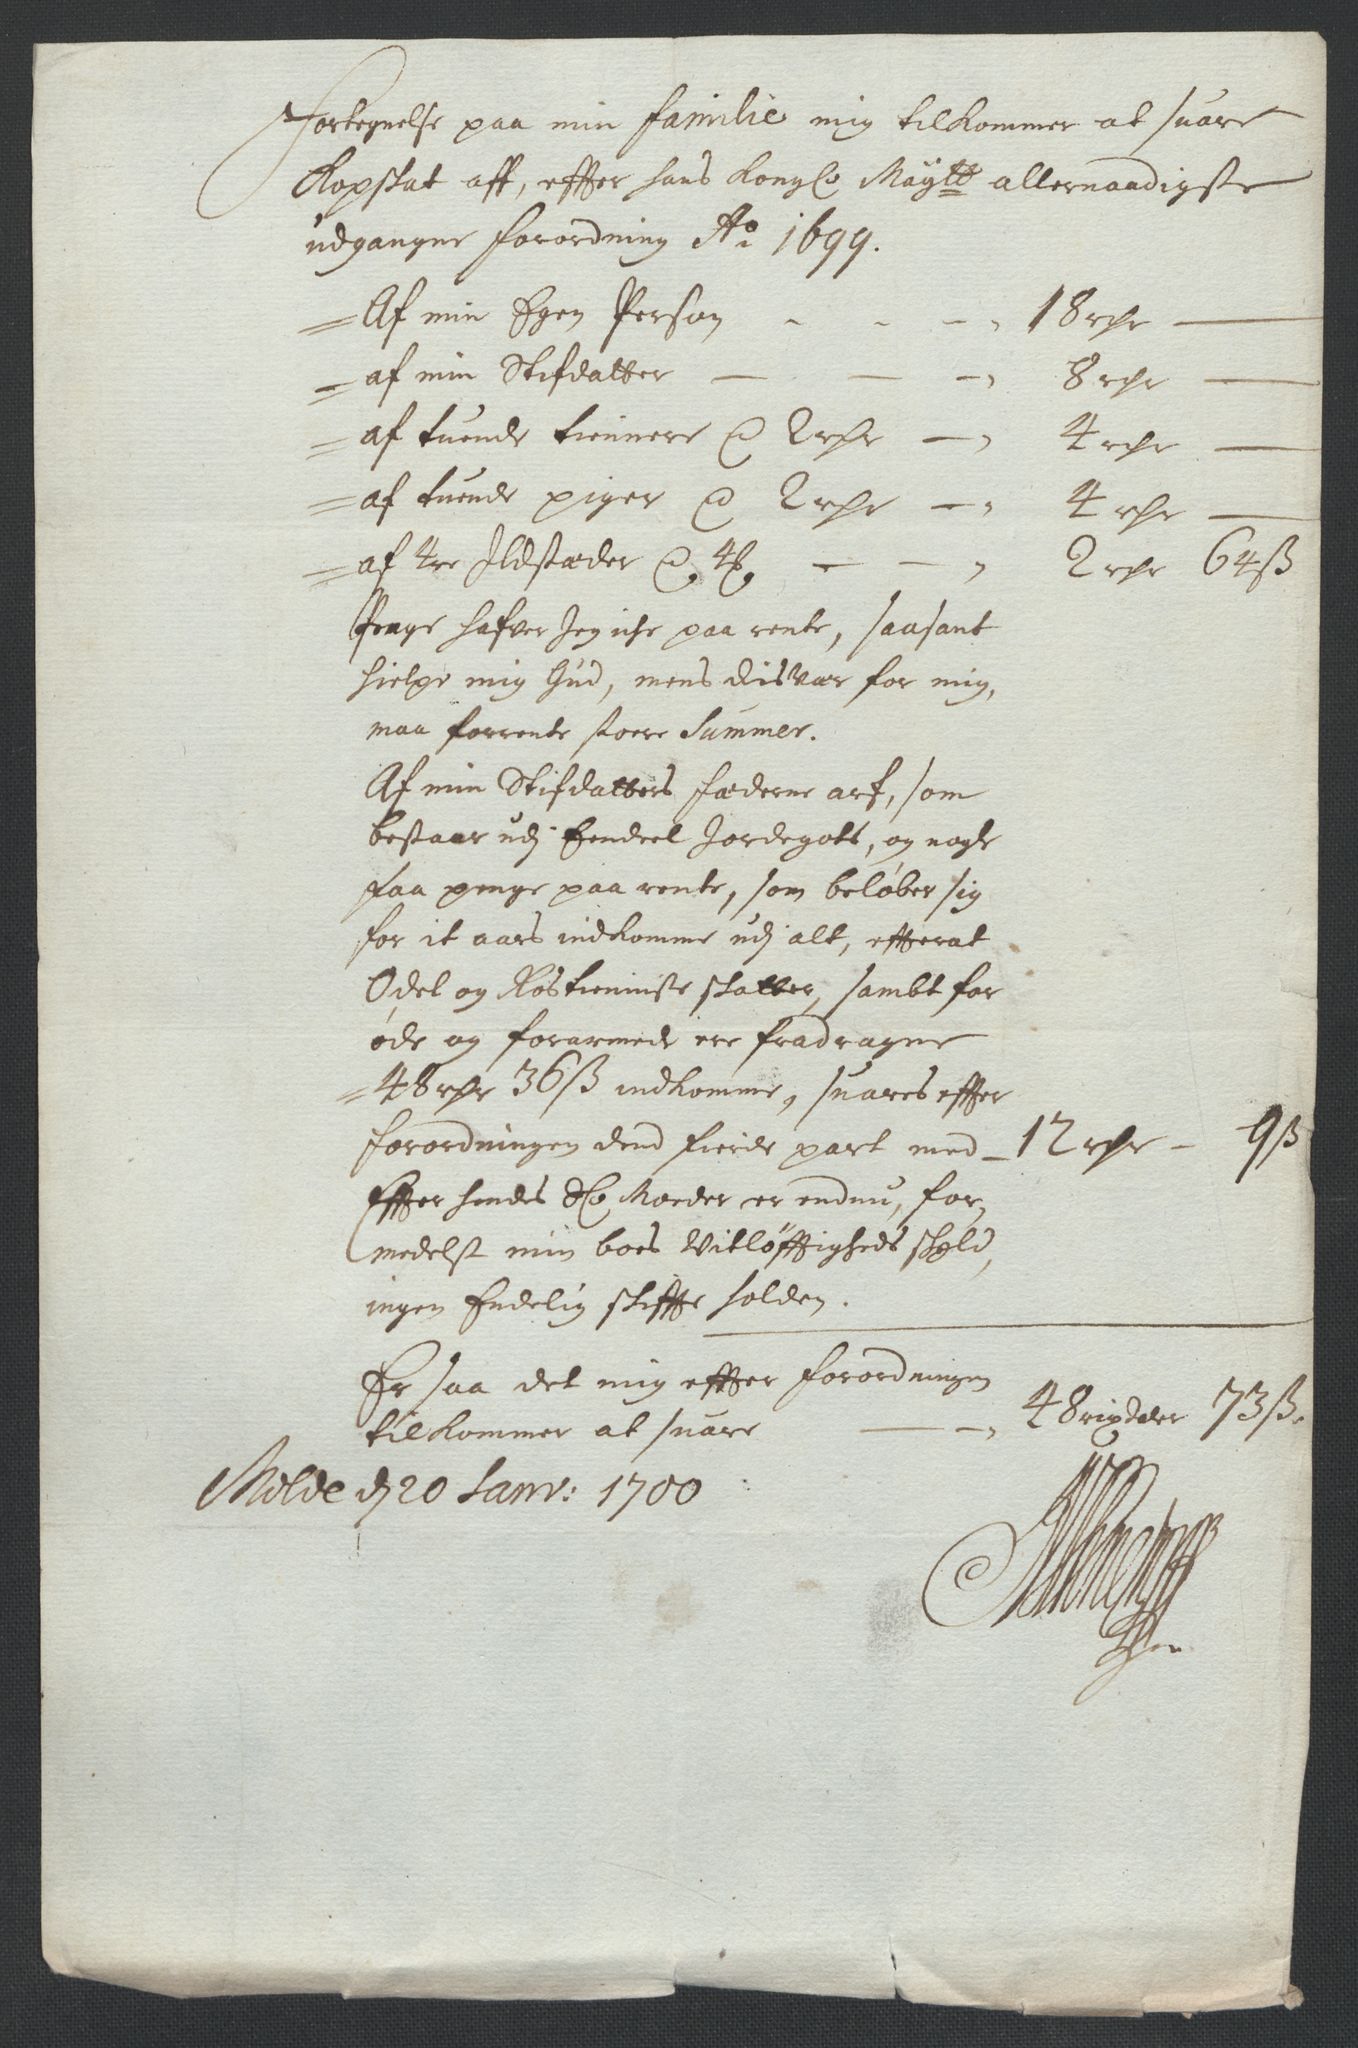 Fortegnelse paa min familie mig tilkommer at suare
Kopskat aff, effter hans Kongl Maytt allernaadigste
udgangne forordning Ao 1699.
Af min Egen Person - - - 18 rdr
af min Stifdatter - - - 8 rdr
af tuende tienner a 2 rdr - 4 rdr
af tuende piger a 2 rdr - 4 rdr
af 4re Ildstæder a 4 - - 2 rdr 64 ß
Penge hafver Jeg iche paa rente, saasant
hielpe mig Gud, mens disvær for mig,
maa forrente stoere Summer.
Af min Stifdatters fæderne arf, som
bestaar udj Eendeel Jordegots, og nogle
faa penge paa rente, som beløber sig
for it aars indkomme udj alt, efferat
Odel og Rostieniste skatter, sambt for
øde og forarmede ere fradragne
48 rdr 36 ß indkomme, suares effter
forordningen dend fierde part med - 12 rdr - 9 ß
Effter hendes Sl Moeder er endnu, for,
medelst min boes Vitløfftigheds skyld,
ingen Endelig skiffte holden.
Er saa det mig effter forordningen
tilkommer at suare - - 48 rixdaler 73 ß.
Milde d 20 Janv: 1700